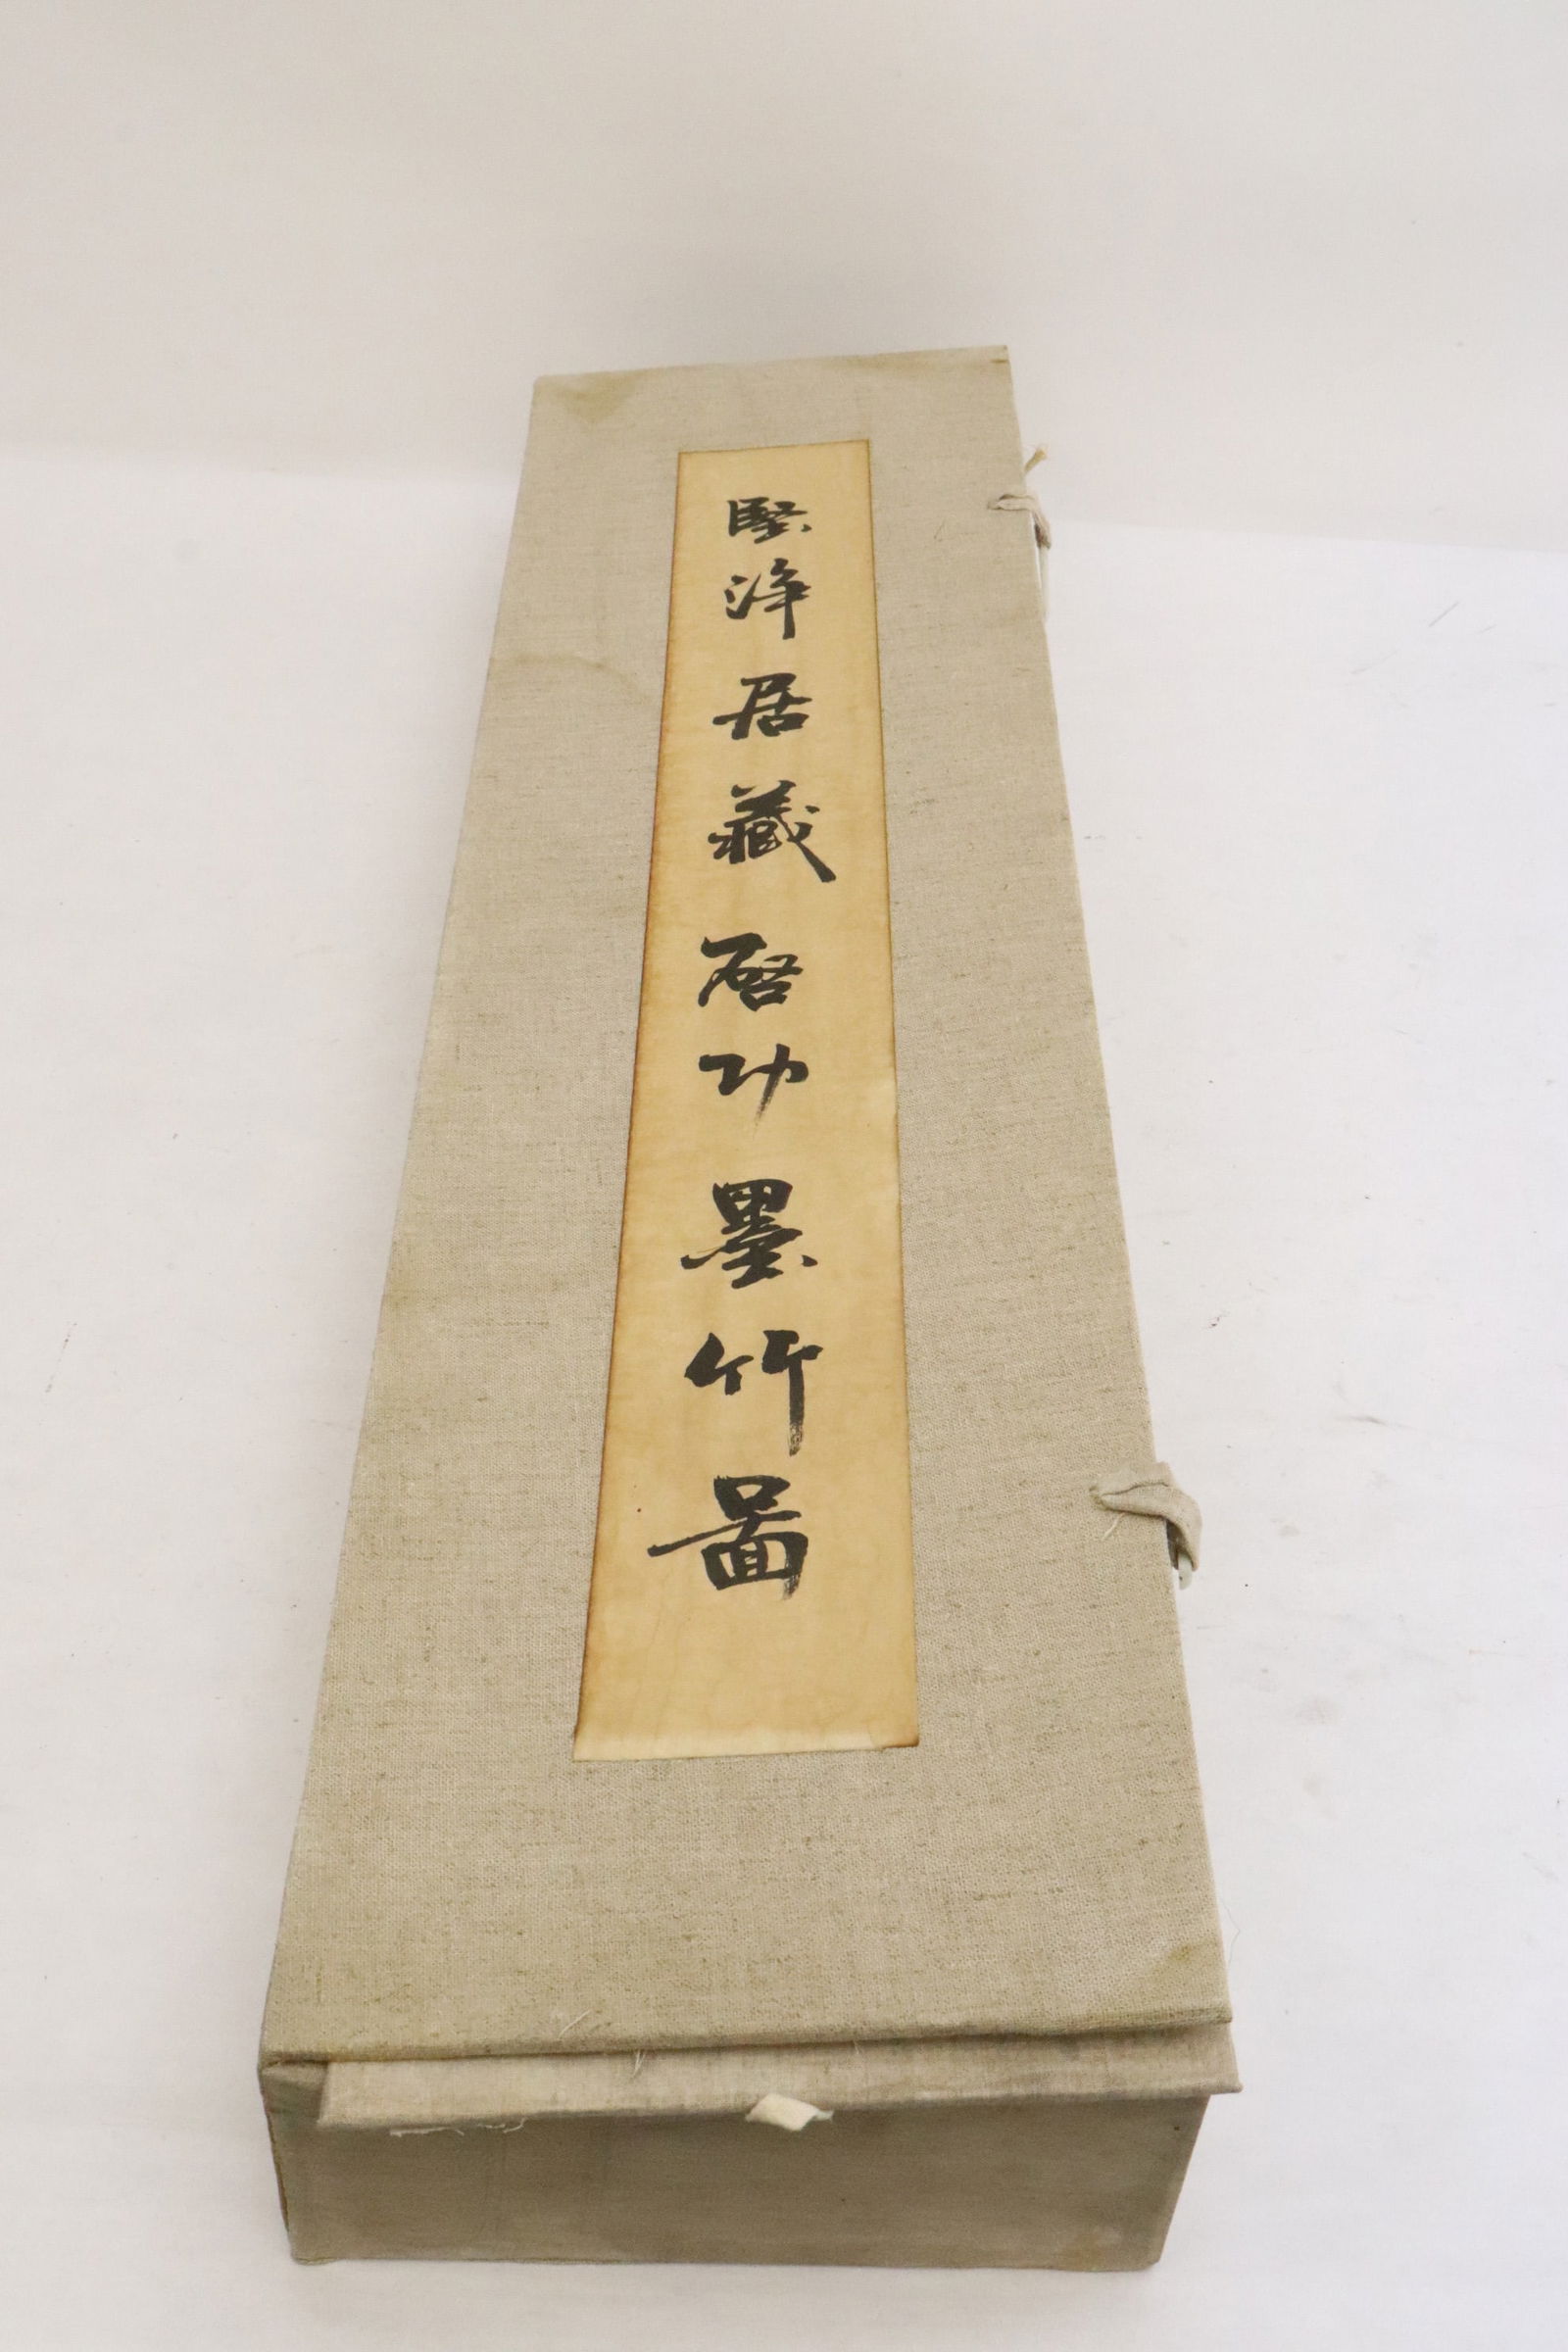 堅淨居藏啓功墨竹圖